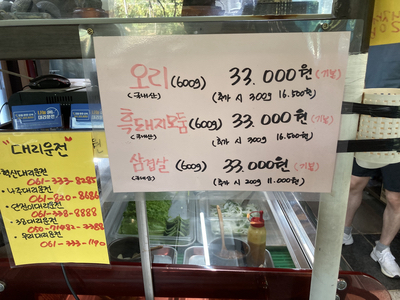 오리 (600g) 33.000원 (기본)
(국내산) (추가 시 300g 16.500원)
흑돼지모듬 (600g) 33.000원 (기본)
(국내산) (추가 시 300g 16.500원)
삼겹살 (600g) 33.000원 (기본)
(국내산) (추가 시 200g 11.000원)
"대리운전"
대리운전
061-333-8285
• 나주대리운전
061-820-8686
대리운전
061-338-8888
대리운전
• 우리대리운전
061-333-1190